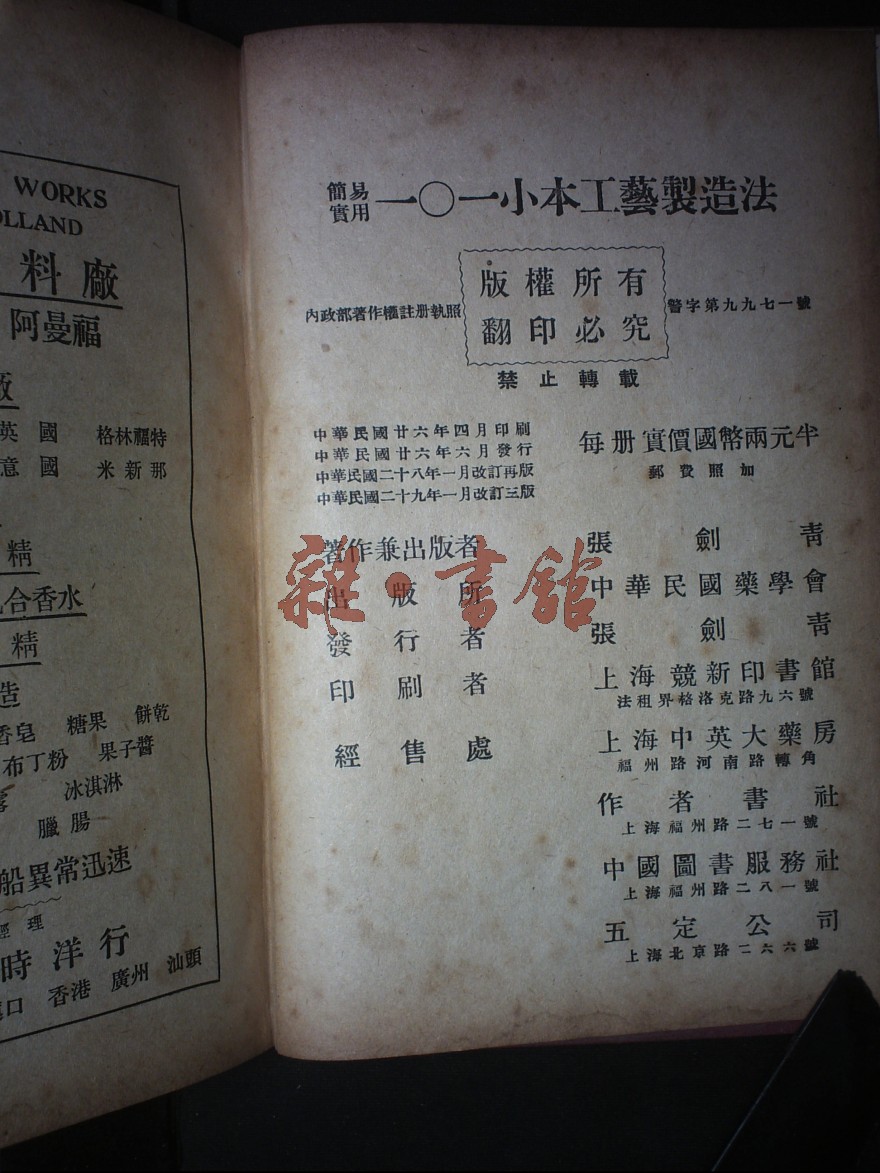 WORKS
OLLAND
料廠
阿曼福
廠
英國 格林福特
意國 米新那
精
合香水
精
造
香皂 糖果 餅乾
布丁粉 果子醬
冰淇淋
臘腸
船異常迅速
經理
時洋行
口 香港 廣州 汕頭
簡易實用 一〇一小本工藝製造法
版權所有
翻印必究
內政部著作權註册執照
警字第九九七一號
禁止轉載
中華民國廿六年四月印刷
中華民國廿六年六月發行
中華民國二十八年一月改訂再版
中華民國二十九年一月改訂三版
每册實價國幣兩元半
郵費照加
著作兼出版者 張劍青
出版所 中華民國藥學會
發行者 張劍青
印刷者 上海競新印書館
法租界格洛克路九六號
經售處 上海中英大藥房
福州路河南路轉角
作者書社
上海福州路二七一號
中國圖書服務社
上海福州路二八一號
五定公司
上海北京路二六六號
雜·書館